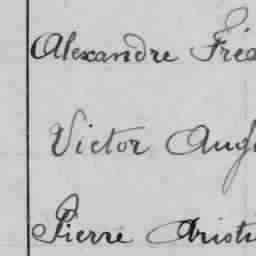 Alexandre Fréd
Victor Augu
Pierre Aristi